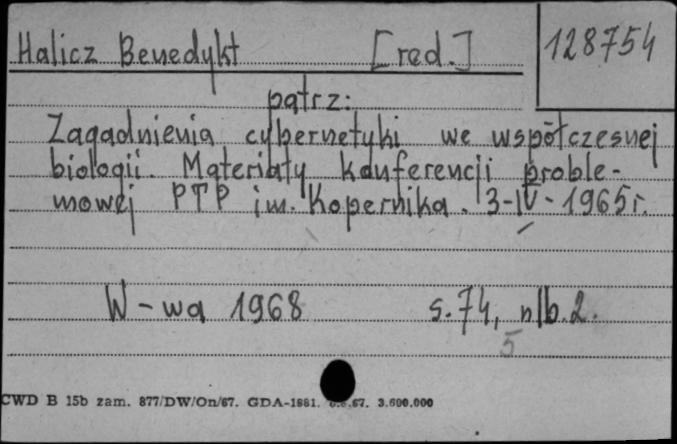 Halicz Benedykt [red.] 128754
patrz:
Zagadnienia cybernetyki we współczesnej
biologii. Materiały konferencji proble-
mowej PTP im. Kopernika. 3-IV-1965r.
W-wa 1968 s.74, nlb.2.
5
CWD B 15b zam. 877/DW/On/67. GDA-1881. 67. 3.600.000